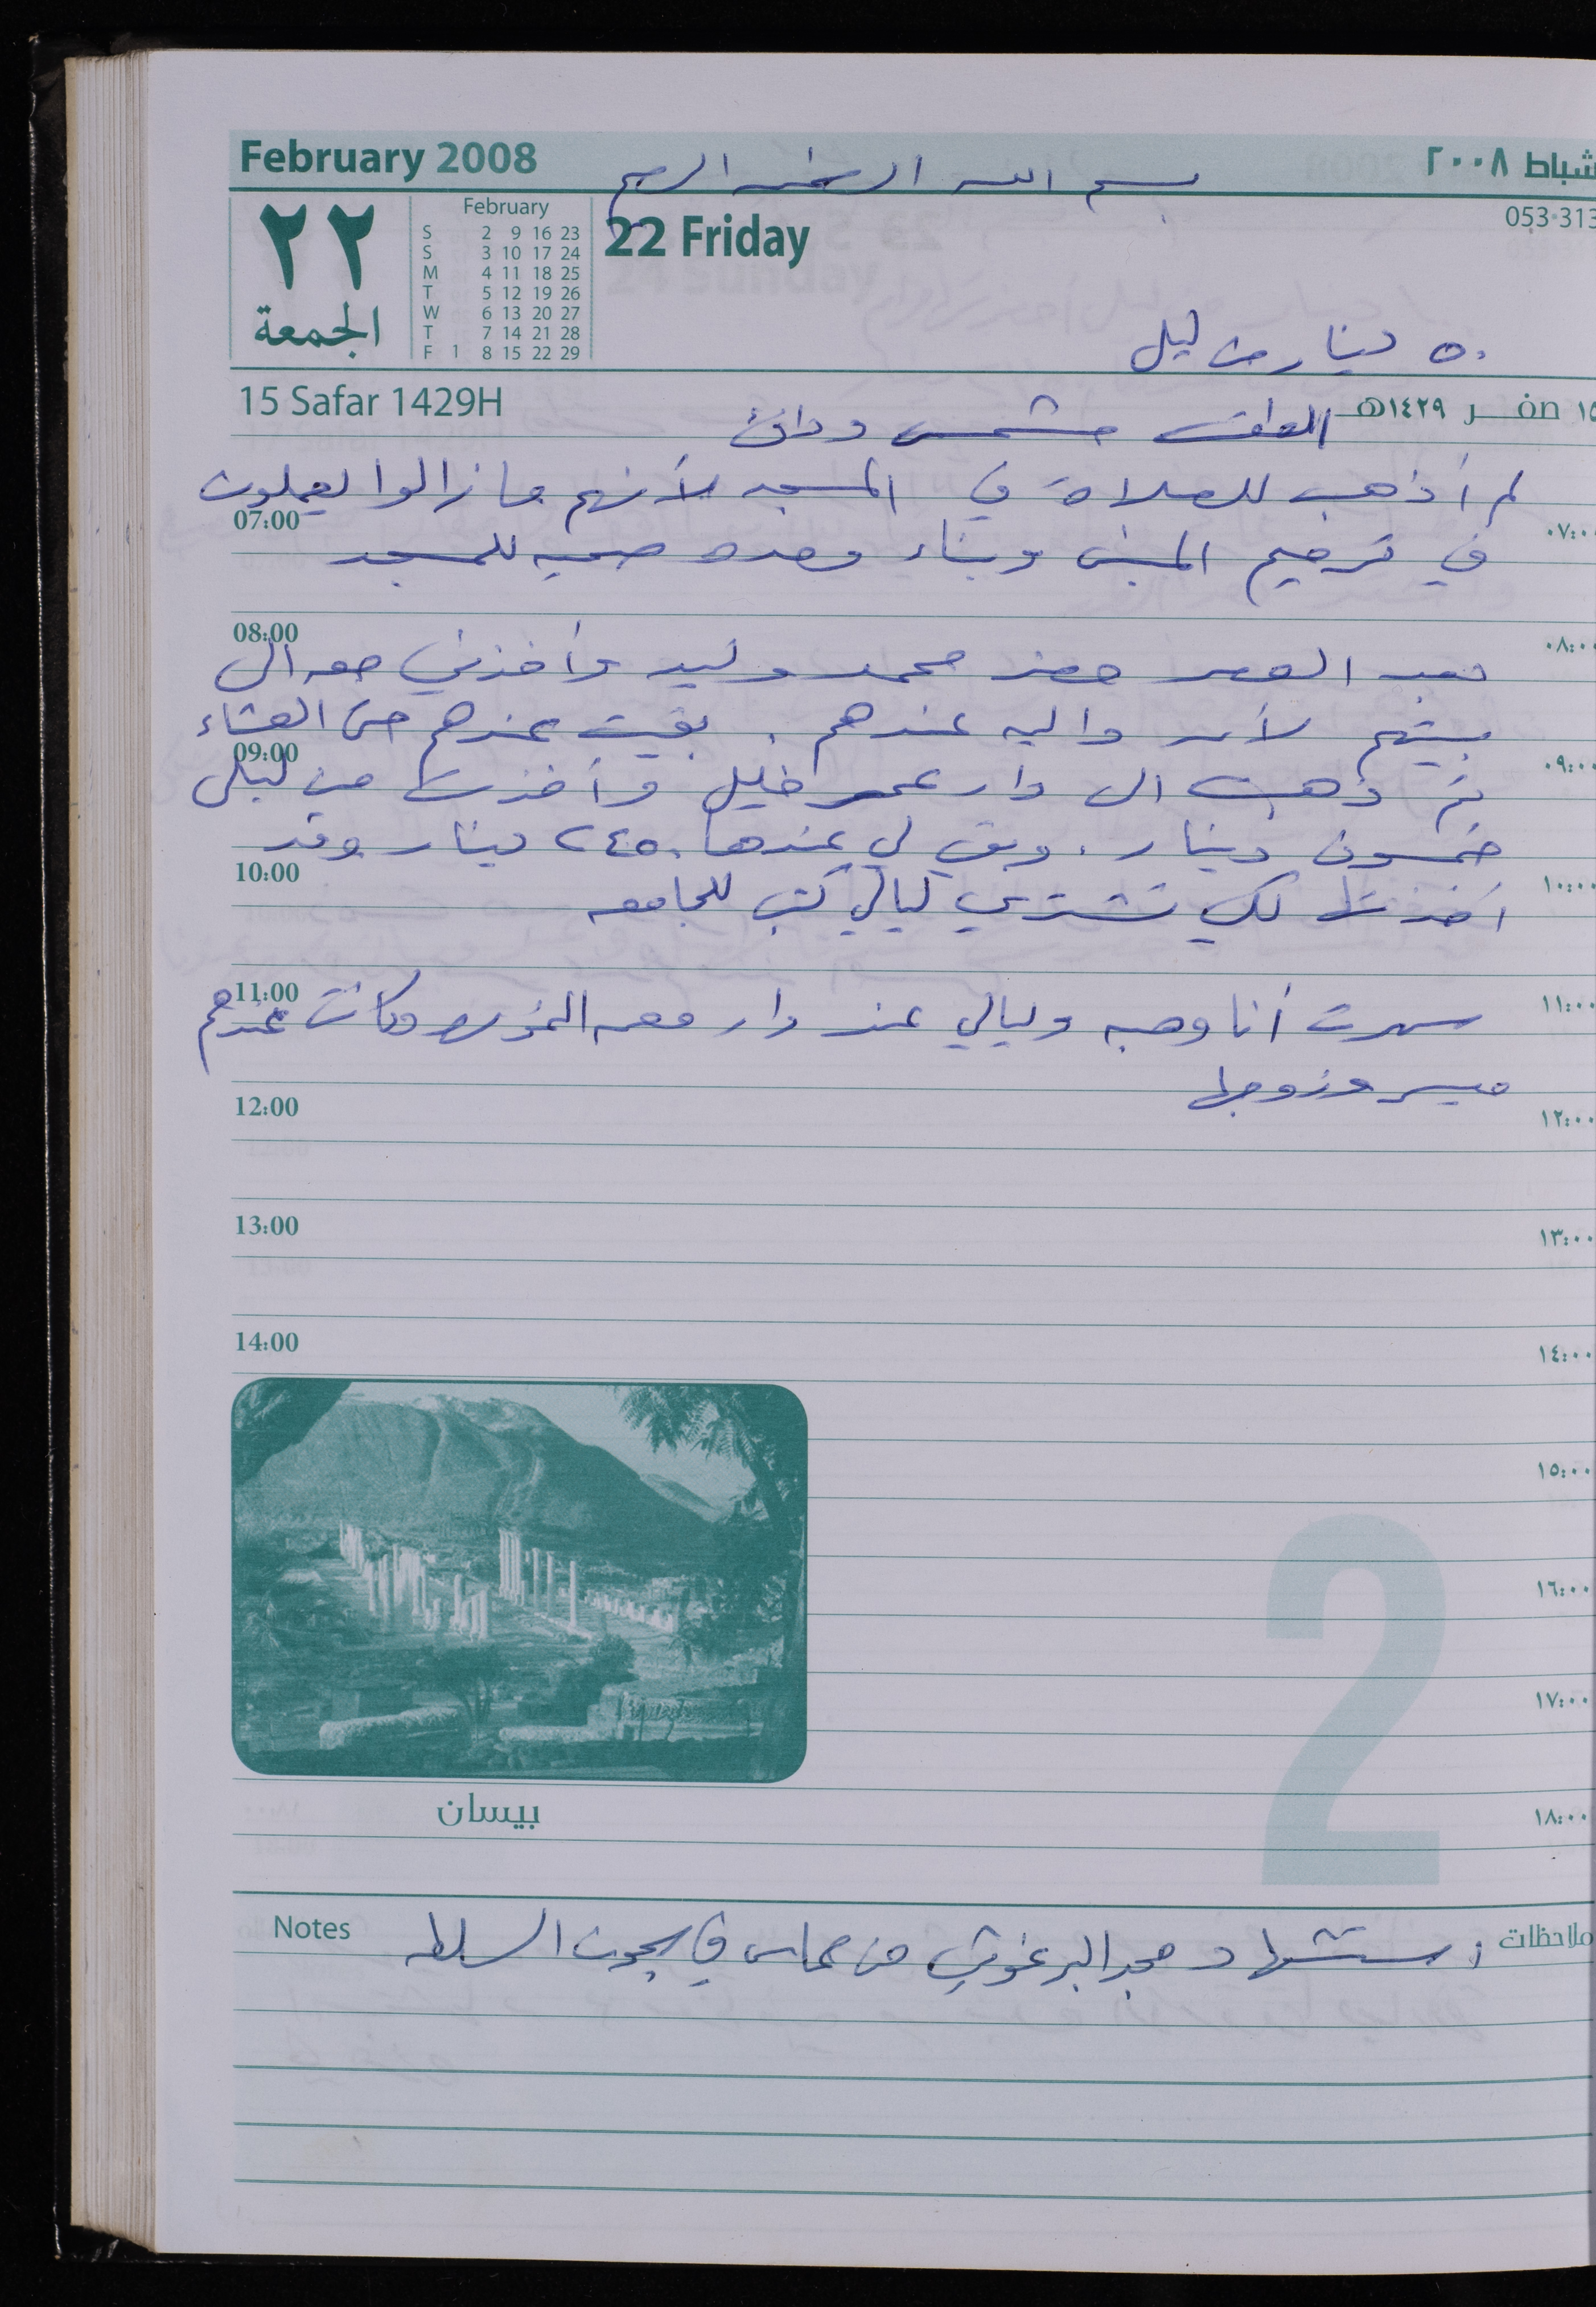 February 2008
بسم الله الرحمن الرحيم
شباط ٢٠٠٨
٢٢
الجمعة
February
S 2 9 16 23
S 3 10 17 24
M 4 11 18 25
T 5 12 19 26
W 6 13 20 27
T 7 14 21 28
F 1 8 15 22 29
22 Friday
053-313
٥٠ دينار من ليلى
15 Safar 1429H
١٥ صفر ١٤٢٩هـ
الطقس مشمس ودافئ
لم أذهب للصلاة في المسجد لأنهم ما زالوا يعملون
07:00 ٠٧:٠٠
في ترميم المبنى وبناء وحده صحيه للمسجد
08:00 ٠٨:٠٠
بعد العصر حضر محمد وليد وأخذني معه الى
بيتهم لأن داليه عندهم . بقيت عندهم حتى العشاء
09:00 ٠٩:٠٠
ثم ذهبت الى دار عمر خليل وأخذت من ليلى
خمسون دينار . وبقي لي عندها ٢٤٥٠ دينار وقد
10:00 ١٠:٠٠
أخذتها لكي تشتري ليالي كتب للجامعه
11:00 ١١:٠٠
سهرت أنا وهبه وليالي عند دار وكانت عندهم
ميسر وزوجها
12:00 ١٢:٠٠
13:00 ١٣:٠٠
14:00 ١٤:٠٠
١٥:٠٠
١٦:٠٠
١٧:٠٠
بيسان
١٨:٠٠
2
Notes ملاحظات
استشهاد مجد البرغوثي من حماس في سجون السلطه